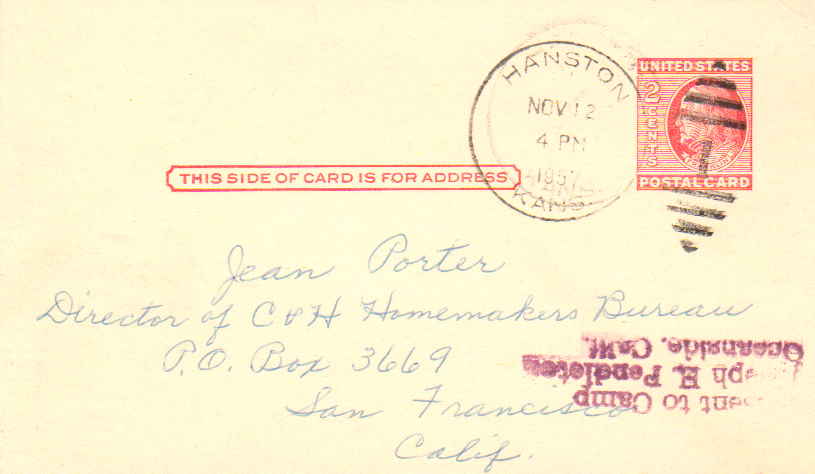 HANSTON
NOV 12
4 PM
1957
KANS.
UNITED STATES
2
CENTS
POSTAL CARD
THIS SIDE OF CARD IS FOR ADDRESS
Jean Porter
Director of C & H Homemakers Bureau
P.O. Box 3669
San Francisco
Calif.
ent to Camp
eph H. Pendleton
Oceanside, Calif.